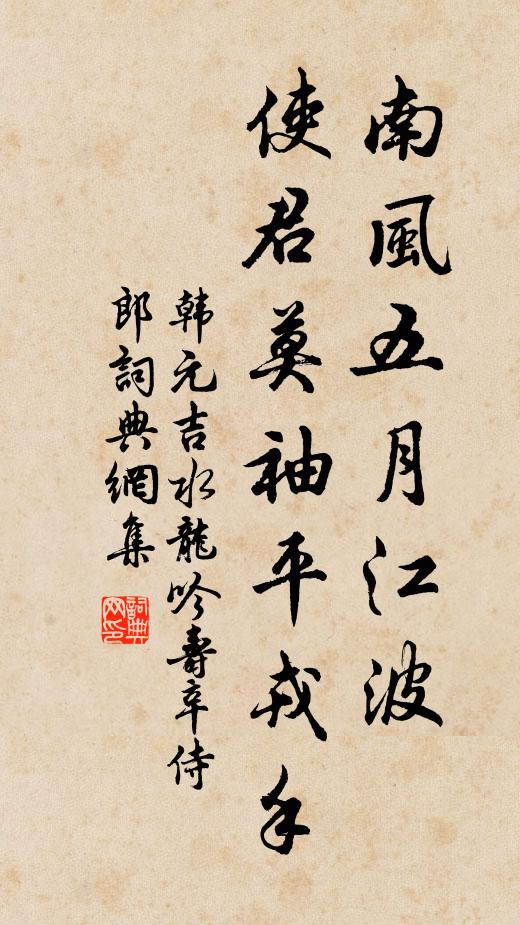 南風五月江波
使君莫袖平戎手
韩元吉水龍吟壽辛侍
郎詞典網集
詞典
网印